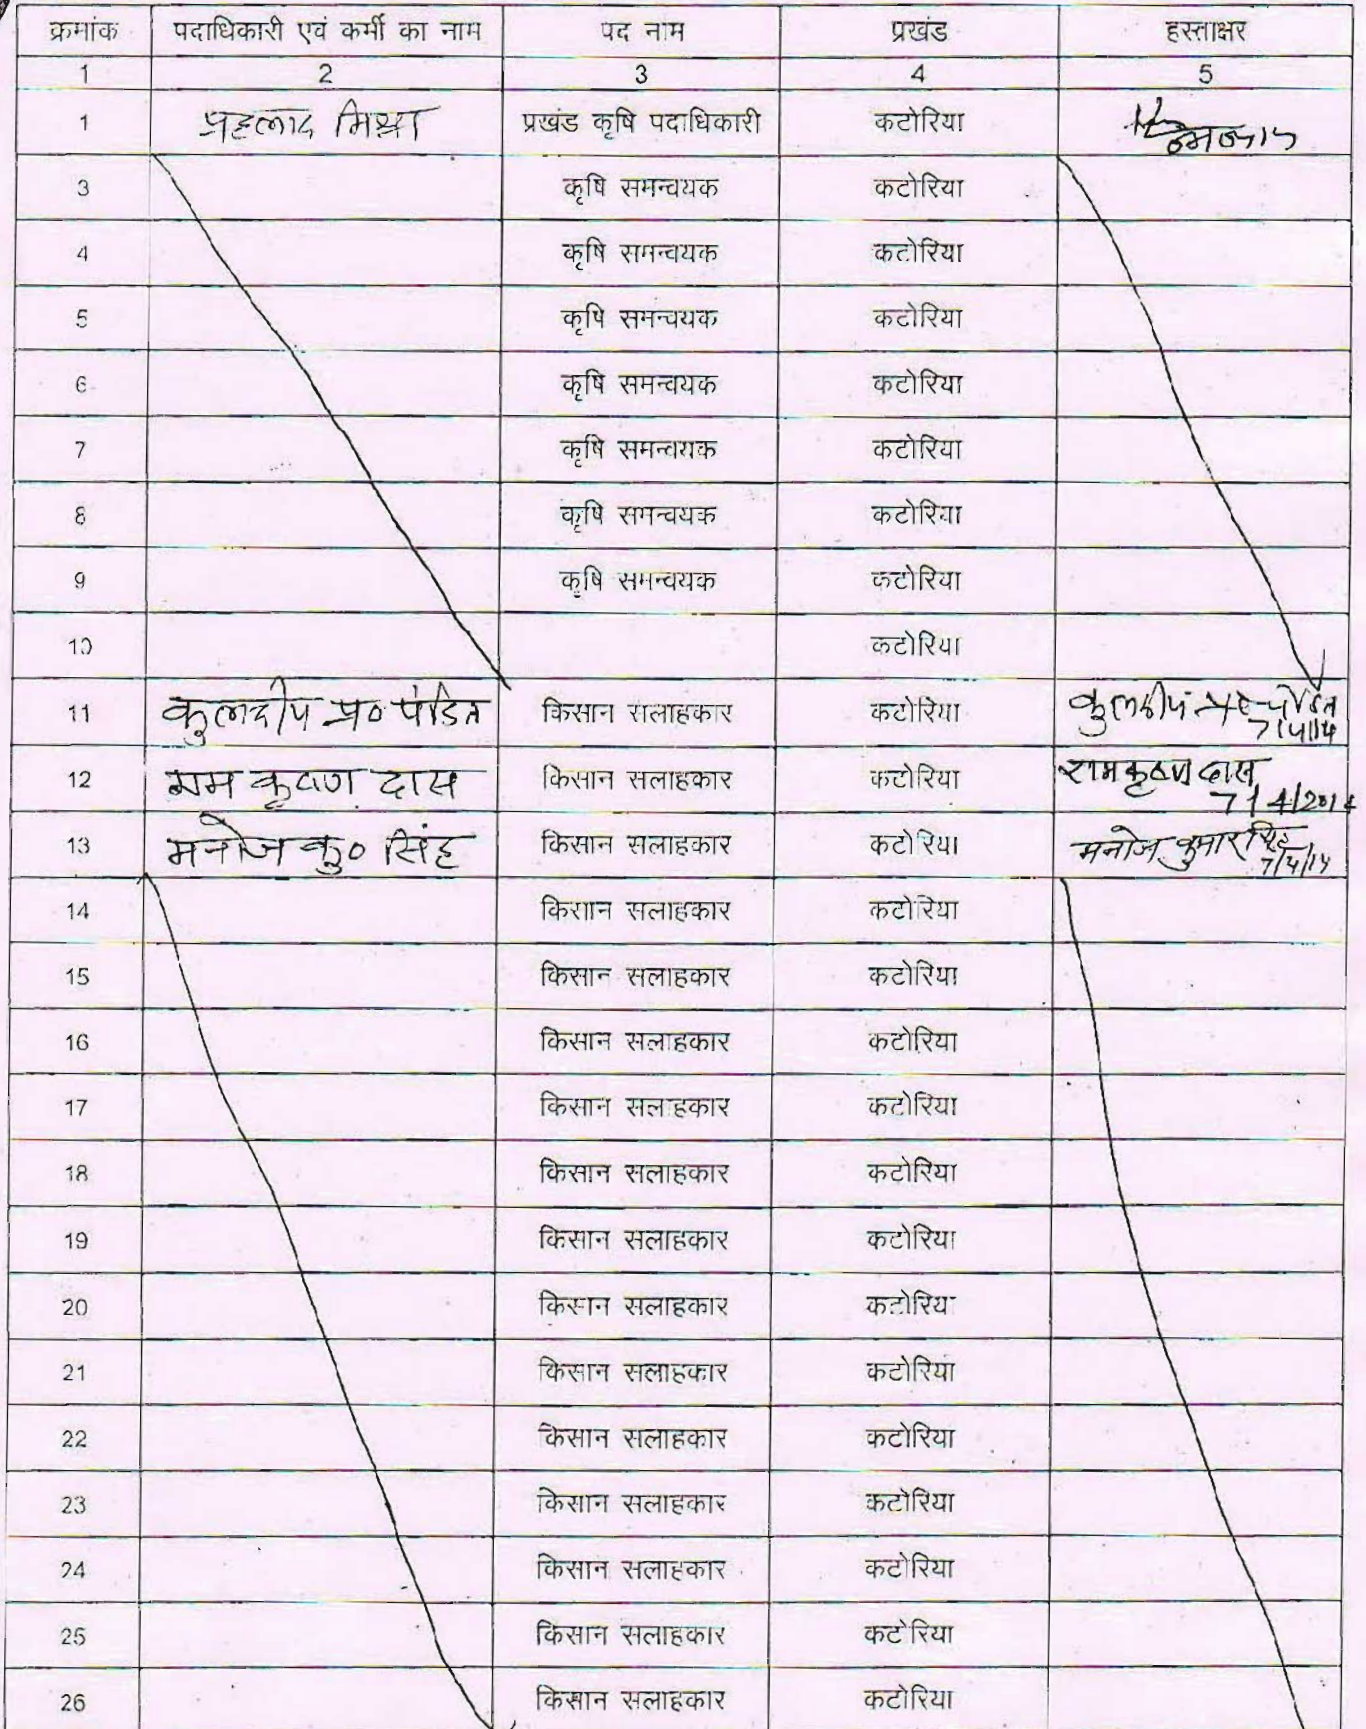 क्रमांक पदाधिकारी एवं कर्मी का नाम पद नाम प्रखंड हस्ताक्षर
1 2 3 4 5
1 प्रहलाद मिश्रा प्रखंड कृषि पदाधिकारी कटोरिया
3 कृषि समन्वयक कटोरिया
4 कृषि समन्वयक कटोरिया
5 कृषि समन्वयक कटोरिया
6 कृषि समन्वयक कटोरिया
7 कृषि समन्वयक कटोरिया
8 कृषि समन्वयक कटोरिया
9 कृषि समन्वयक कटोरिया
10 कटोरिया
11 कुलदीप प्र० पंडित किसान सलाहकार कटोरिया कुलदीप प्र० पंडित
7/4/14
12 राम कृष्ण दास किसान सलाहकार कटोरिया रामकृष्ण दास
7/4/2014
13 मनोज कु० सिंह किसान सलाहकार कटोरिया मनोज कुमार सिंह
7/4/14
14 किसान सलाहकार कटोरिया
15 किसान सलाहकार कटोरिया
16 किसान सलाहकार कटोरिया
17 किसान सलाहकार कटोरिया
18 किसान सलाहकार कटोरिया
19 किसान सलाहकार कटोरिया
20 किसान सलाहकार कटोरिया
21 किसान सलाहकार कटोरिया
22 किसान सलाहकार कटोरिया
23 किसान सलाहकार कटोरिया
24 किसान सलाहकार कटोरिया
25 किसान सलाहकार कटोरिया
26 किसान सलाहकार कटोरिया